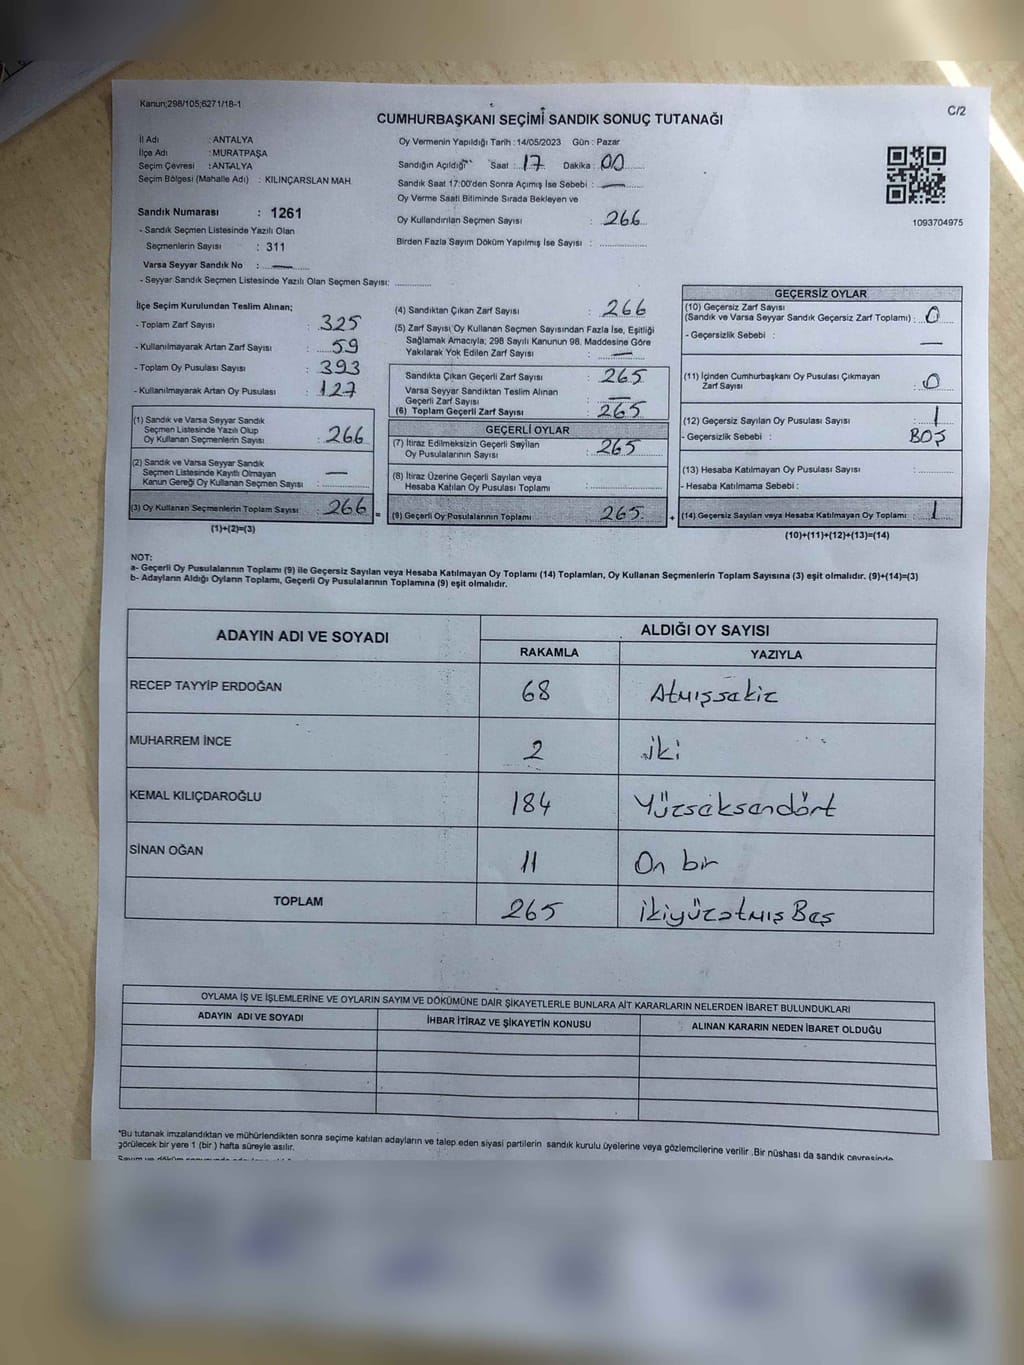 Kanun;298/105;6271/18-1
C/2
CUMHURBAŞKANI SEÇİMİ SANDIK SONUÇ TUTANAĞI
İl Adı : ANTALYA
İlçe Adı : MURATPAŞA
Seçim Çevresi : ANTALYA
Seçim Bölgesi (Mahalle Adı) : KILINÇARSLAN MAH.
Sandık Numarası : 1261
- Sandık Seçmen Listesinde Yazılı Olan
Seçmenlerin Sayısı : 311
Varsa Seyyar Sandık No : —
- Seyyar Sandık Seçmen Listesinde Yazılı Olan Seçmen Sayısı:
Oy Vermenin Yapıldığı Tarih : 14/05/2023 Gün : Pazar
Sandığın Açıldığı Saat : 17 Dakika : 00
Sandık Saat 17:00'den Sonra Açımış İse Sebebi : —
Oy Verme Saati Bitiminde Sırada Bekleyen ve
Oy Kullandırılan Seçmen Sayısı : 266
Birden Fazla Sayım Döküm Yapılmış İse Sayısı :
1093704975
İlçe Seçim Kurulundan Teslim Alınan;
- Toplam Zarf Sayısı : 325
- Kullanılmayarak Artan Zarf Sayısı : 59
- Toplam Oy Pusulası Sayısı : 393
- Kullanılmayarak Artan Oy Pusulası : 127
(1) Sandık ve Varsa Seyyar Sandık
Seçmen Listesinde Yazılı Olup
Oy Kullanan Seçmenlerin Sayısı : 266
(2) Sandık ve Varsa Seyyar Sandık
Seçmen Listesinde Kayıtlı Olmayan
Kanun Gereği Oy Kullanan Seçmen Sayısı : —
(3) Oy Kullanan Seçmenlerin Toplam Sayısı : 266 =
(1)+(2)=(3)
(4) Sandıktan Çıkan Zarf Sayısı : 266
(5) Zarf Sayısı Oy Kullanan Seçmen Sayısından Fazla İse, Eşitliği
Sağlamak Amacıyla; 298 Sayılı Kanunun 98. Maddesine Göre
Yakılarak Yok Edilen Zarf Sayısı : —
Sandıkta Çıkan Geçerli Zarf Sayısı : 265
Varsa Seyyar Sandıktan Teslim Alınan
Geçerli Zarf Sayısı : —
(6) Toplam Geçerli Zarf Sayısı : 265
GEÇERLİ OYLAR
(7) İtiraz Edilmeksizin Geçerli Sayılan
Oy Pusulalarının Sayısı : 265
(8) İtiraz Üzerine Geçerli Sayılan veya
Hesaba Katılan Oy Pusulası Toplamı :
(9) Geçerli Oy Pusulalarının Toplamı : 265 +
GEÇERSİZ OYLAR
(10) Geçersiz Zarf Sayısı
(Sandık ve Varsa Seyyar Sandık Geçersiz Zarf Toplamı) : 0
- Geçersizlik Sebebi : —
(11) İçinden Cumhurbaşkanı Oy Pusulası Çıkmayan
Zarf Sayısı : 0
(12) Geçersiz Sayılan Oy Pusulası Sayısı : 1
- Geçersizlik Sebebi : BOŞ
(13) Hesaba Katılmayan Oy Pusulası Sayısı :
- Hesaba Katılmama Sebebi :
(14) Geçersiz Sayılan veya Hesaba Katılmayan Oy Toplamı : 1
(10)+(11)+(12)+(13)=(14)
NOT:
a- Geçerli Oy Pusulalarının Toplamı (9) ile Geçersiz Sayılan veya Hesaba Katılmayan Oy Toplamı (14) Toplamları, Oy Kullanan Seçmenlerin Toplam Sayısına (3) eşit olmalıdır. (9)+(14)=(3)
b- Adayların Aldığı Oyların Toplamı, Geçerli Oy Pusulalarının Toplamına (9) eşit olmalıdır.
ADAYIN ADI VE SOYADI ALDIĞI OY SAYISI
RAKAMLA YAZIYLA
RECEP TAYYİP ERDOĞAN 68 Atmışsekiz
MUHARREM İNCE 2 iki
KEMAL KILIÇDAROĞLU 184 Yüzseksendört
SİNAN OĞAN 11 On bir
TOPLAM 265 ikiyüzatmış Beş
OYLAMA İŞ VE İŞLEMLERİNE VE OYLARIN SAYIM VE DÖKÜMÜNE DAİR ŞİKAYETLERLE BUNLARA AİT KARARLARIN NELERDEN İBARET BULUNDUKLARI
ADAYIN ADI VE SOYADI İHBAR İTİRAZ VE ŞİKAYETİN KONUSU ALINAN KARARIN NEDEN İBARET OLDUĞU
*Bu tutanak imzalandıktan ve mühürlendikten sonra seçime katılan adayların ve talep eden siyasi partilerin sandık kurulu üyelerine veya gözlemcilerine verilir .Bir nüshası da sandık çevresinde
görülecek bir yere 1 (bir ) hafta süreyle asılır.